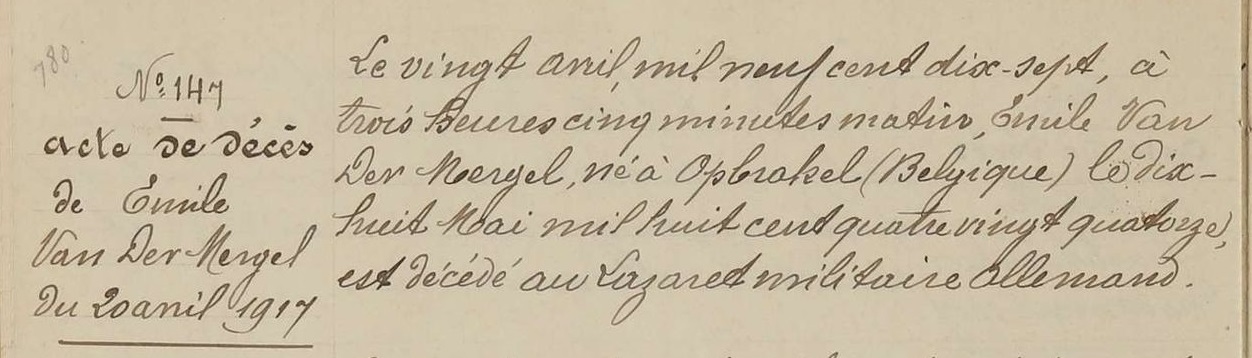 780
Nº 147
acte de décès
de Emile
Van Der Mergel
du 20 avril 1917
Le vingt avril, mil neuf cent dix-sept, à
trois heures cinq minutes matin, Emile Van
Der Mergel, né à Opbrakel (Belgique) le dix-
huit Mai mil huit cent quatre vingt quatorze,
est décédé au Lazaret militaire allemand.